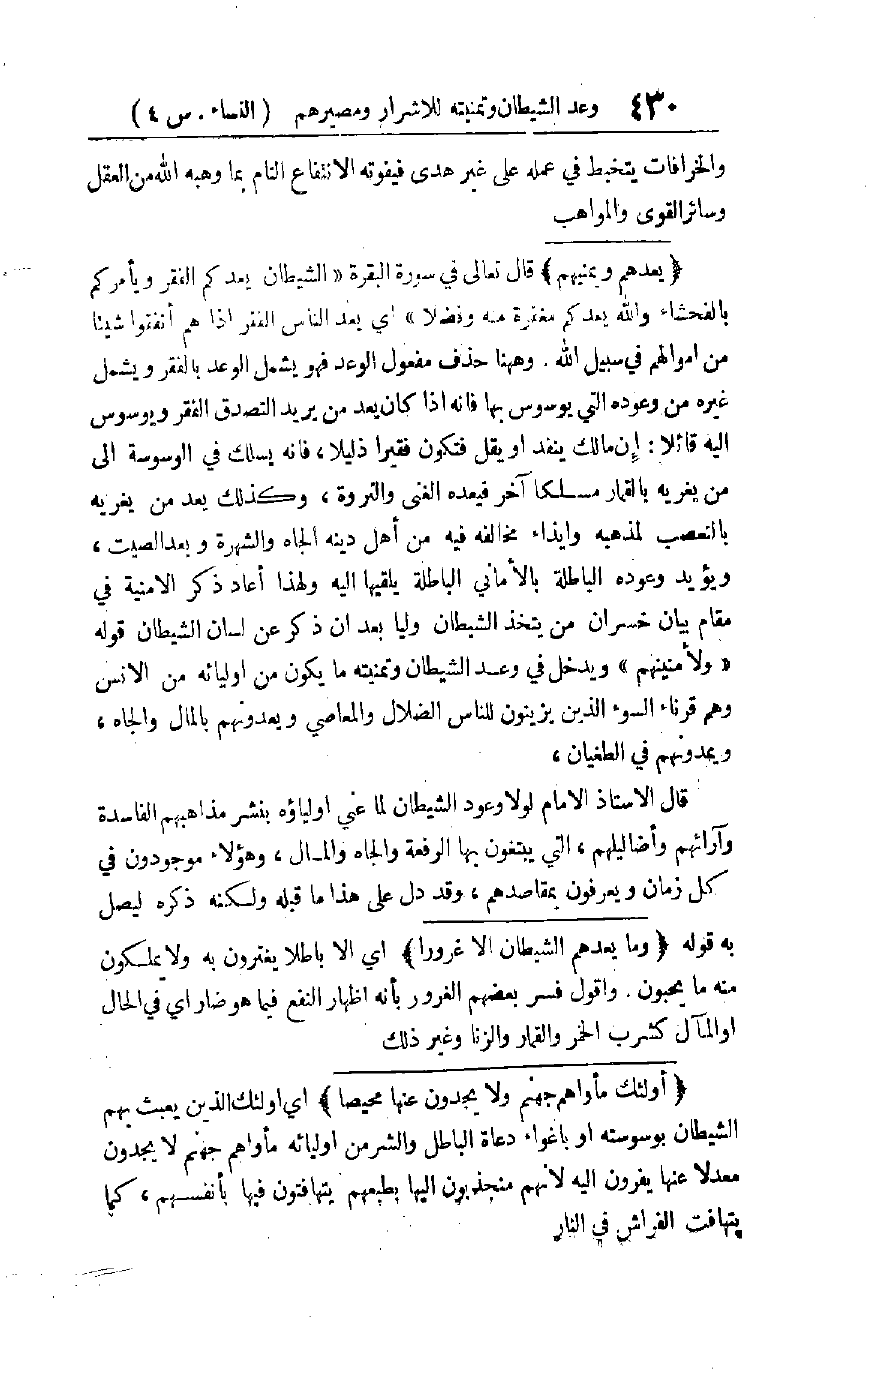 ٤٣٠ وعد الشيطان وتمنيته للاشرار ومصيرهم ( النساء . س ٤ )
والخرافات يتخبط في عمله على غير هدى فيفوته الانتفاع التام بما وهبه الله من العقل
وسائر القوى والمواهب
﴿ يعدهم ويمنيهم ﴾ قال تعالى في سورة البقرة « الشيطان يعدكم الفقر ويأمركم
بالفحشاء والله يعدكم مغفرة منه وفضلا » اي يعد الناس الفقر اذا هم أنفقوا شيئا
من اموالهم في سبيل الله . وههنا حذف مفعول الوعد فهو يشمل الوعد بالفقر ويشمل
غيره من وعوده التي يوسوس بها فانه اذا كان يعد من يريد التصدق الفقر ويوسوس
اليه قائلا : إن مالك ينفد او يقل فتكون فقيرا ذليلا ، فانه يسلك في الوسوسة الى
من يغريه بالقمار مسلكا آخر فيعده الغنى والثروة ، وكذلك يعد من يغريه
بالتعصب لمذهبه وايذاء مخالفه فيه من أهل دينه الجاه والشهرة وبعد الصيت ،
ويؤيد وعوده الباطلة بالأماني الباطلة يلقيها اليه ولهذا أعاد ذكر الامنية في
مقام بيان خسران من يتخذ الشيطان وليا بعد ان ذكر عن لسان الشيطان قوله
« ولأمنينهم » ويدخل في وعد الشيطان وتمنيته ما يكون من اوليائه من الانس
وهم قرناء السوء الذين يزينون للناس الضلال والمعاصي ويعدونهم بالمال والجاه ،
ويمدونهم في الطغيان ،
قال الاستاذ الامام لولا وعود الشيطان لما عني اولياؤه بنشر مذاهبهم الفاسدة
وآرائهم وأضاليلهم ، التي يبتغون بها الرفعة والجاه والمال ، وهؤلاء موجودون في
كل زمان ويعرفون بمقاصدهم ، وقد دل على هذا ما قبله ولكنه ذكره ليصل
به قوله ﴿ وما يعدهم الشيطان الا غرورا ﴾ اي الا باطلا يغترون به ولا يملكون
منه ما يحبون . واقول فسر بعضهم الغرور بأنه اظهار النفع فيما هو ضار اي في الحال
او المآل كشرب الخمر والقمار والزنا وغير ذلك
﴿ أولئك مأواهم جهنم ولا يجدون عنها محيصا ﴾ اي اولئك الذين يعبث بهم
الشيطان بوسوسته او باغواء دعاة الباطل والشر من اوليائه مأواهم جهنم لا يجدون
معدلا عنها يفرون اليه لانهم منجذبون اليها بطبعهم يتهافتون فيها بأنفسهم ، كما
يتهافت الفراش في النار